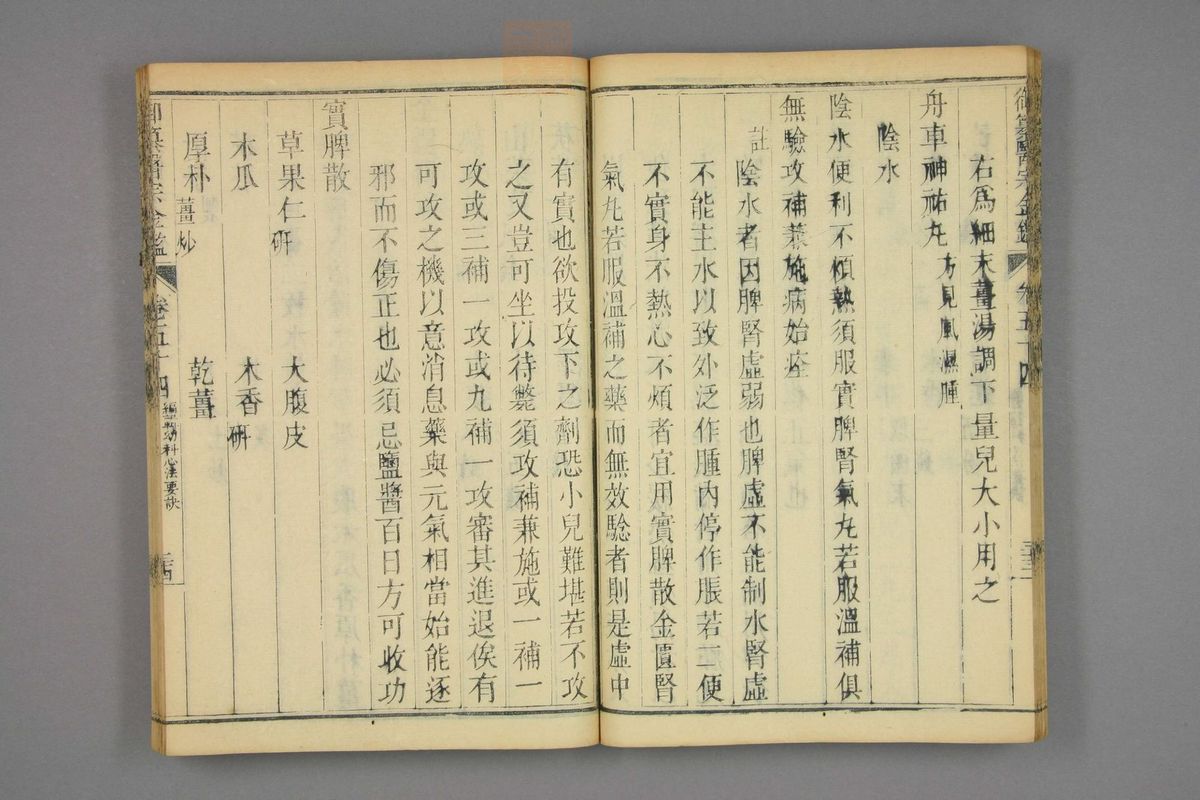 御纂醫宗金鑑 卷五十四
右為細末薑湯調下量兒大小用之
舟車神祐丸 方見風濕腫
陰水
陰水便利不煩熱須服實脾腎氣丸若服溫補俱
無驗攻補兼施病始痊
註 陰水者因脾腎虛弱也脾虛不能制水腎虛
不能主水以致外泛作腫內停作脹若二便
不實身不熱心不煩者宜用實脾散金匱腎
氣丸若服溫補之藥而無效驗者則是虛中
有實也欲投攻下之劑恐小兒難堪若不攻
之又豈可坐以待斃須攻補兼施或一補一
攻或三補一攻或九補一攻審其進退俟有
可攻之機以意消息藥與元氣相當始能逐
邪而不傷正也必須忌鹽醬百日方可收功
實脾散
草果仁 研 大腹皮
木瓜 木香 研
厚朴 薑炒 乾薑
御纂醫宗金鑑 卷五十四 編輯幼科心法要訣 三十四